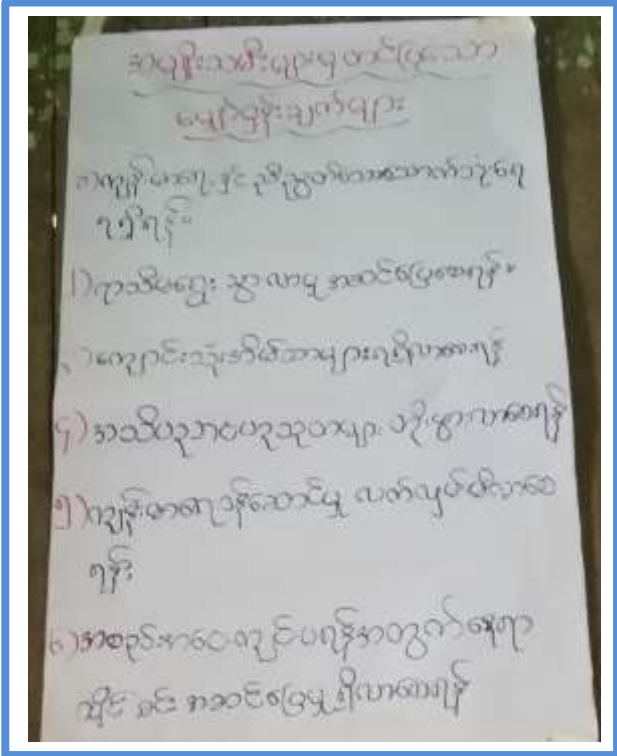 အမျိုးသမီးများမှ တင်ပြသော
မျှော်မှန်းချက်များ
၁)ကျန်းမာရေးနှင့် ညီညွတ်သောသောက်သုံးရေ
ရရှိရန်။
၂)ရာသီမရွေး သွားလာမှု အဆင်ပြေစေရန်။
၃)ကျောင်းသုံးအိမ်သာများရရှိလာစေရန်
၄)အသိပညာဗဟုသုတများ တိုးပွားလာစေရန်
၅)ကျန်းမာရေးဝန်ဆောင်မှု လက်လှမ်းမီလာစေ
ရန်း
၆)အစည်းအဝေးကျင်းပရန်အတွက်နေရာ
ထိုင်ခင်း အဆင်ပြေမှု ရှိလာစေရန်